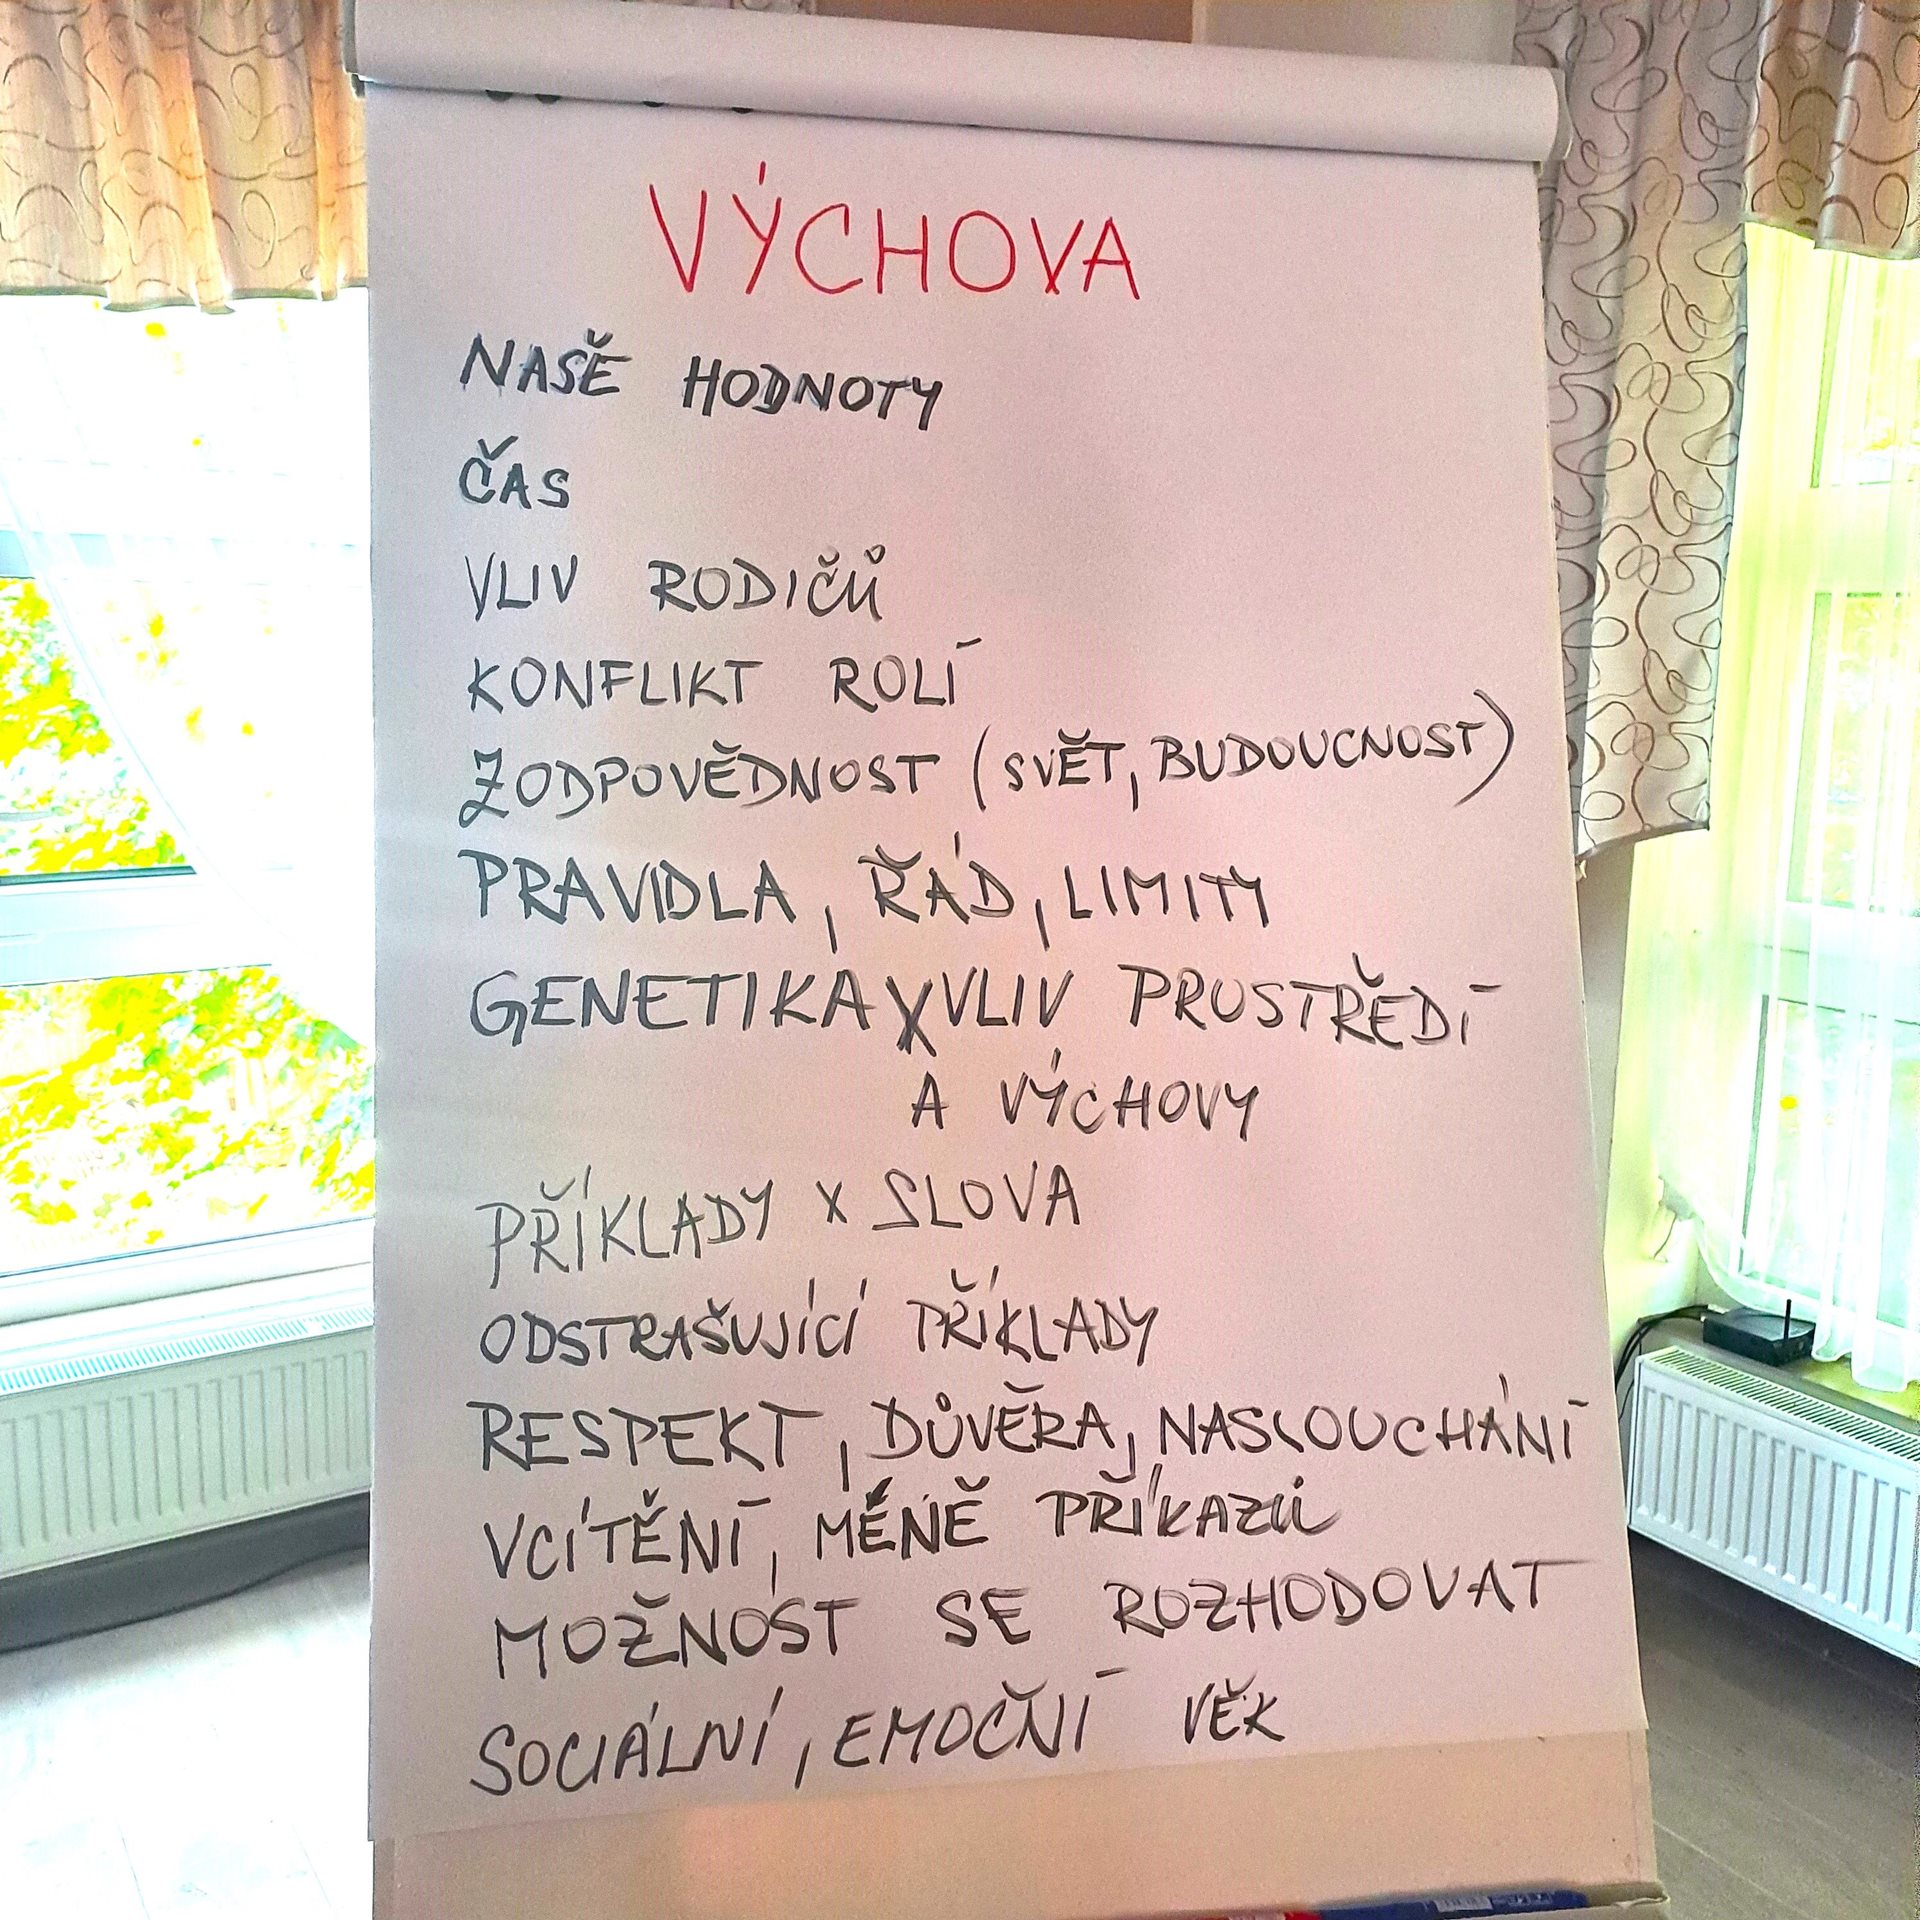 VÝCHOVA
NAŠE HODNOTY
ČAS
VLIV RODIČŮ
KONFLIKT ROLÍ
ZODPOVĚDNOST (SVĚT, BUDOUCNOST)
PRAVIDLA, ŘÁD, LIMITY
GENETIKA X VLIV PROSTŘEDÍ
A VÝCHOVY
PŘÍKLADY X SLOVA
ODSTRAŠUJÍCÍ PŘÍKLADY
RESPEKT, DŮVĚRA, NASLOUCHÁNÍ
VCÍTĚNÍ, MÉNĚ PŘÍKAZŮ
MOŽNOST SE ROZHODOVAT
SOCIÁLNÍ, EMOČNÍ VĚK